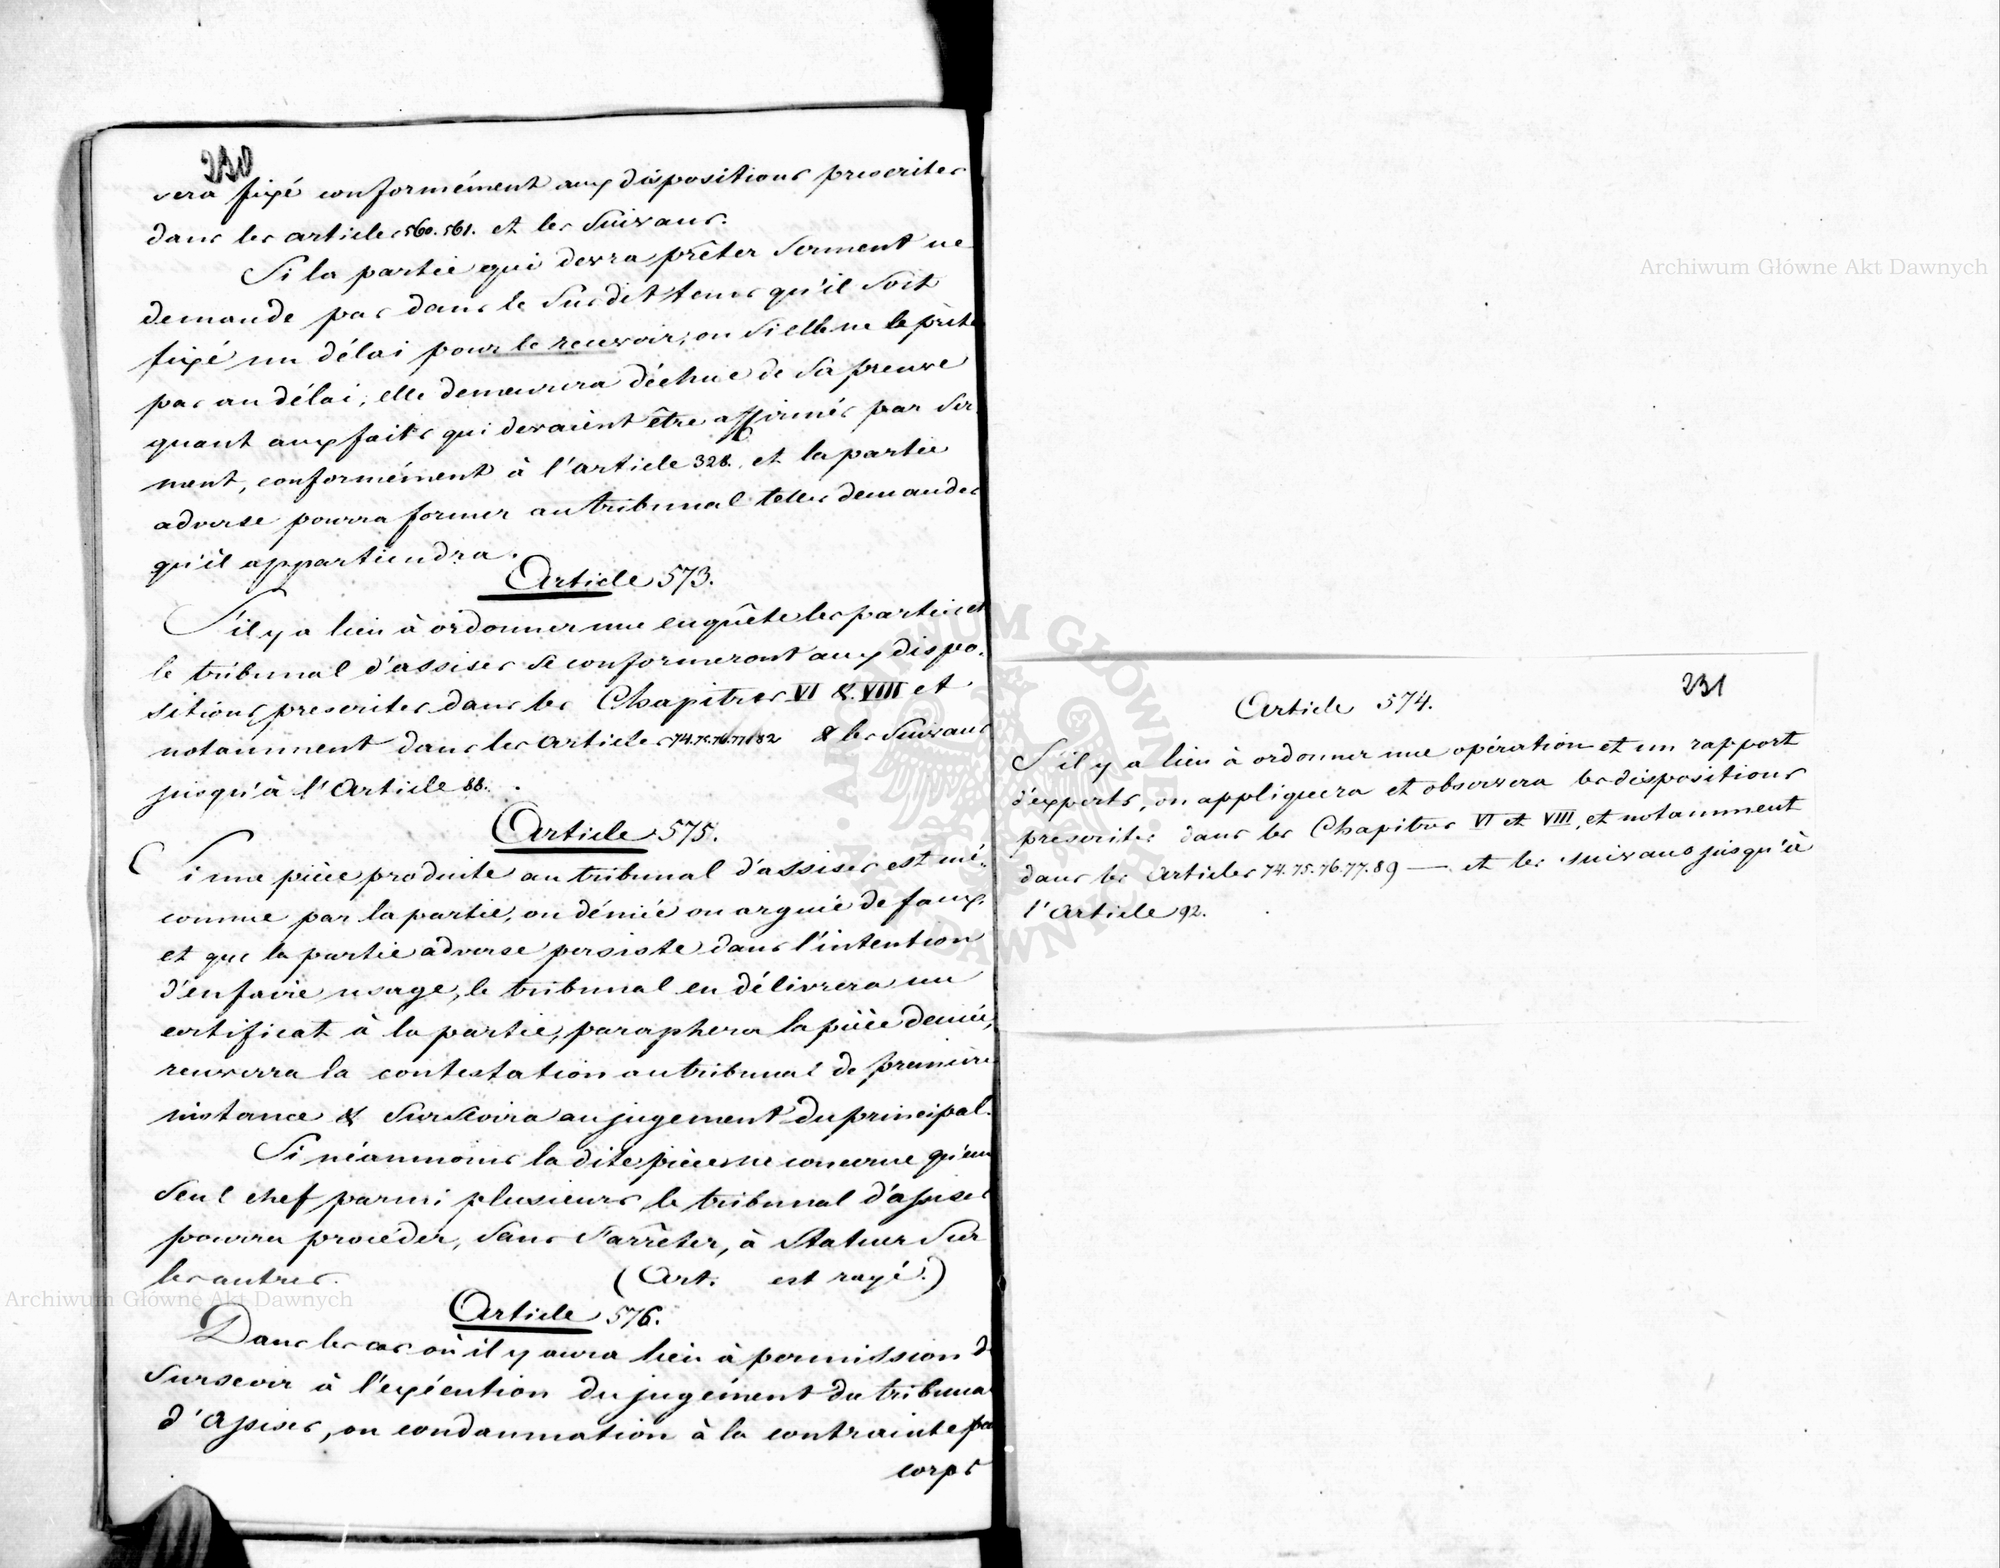 230
sera fixé conformément aux dispositions prescrites
dans les articles 560. 561. et les suivans.
Si la partie qui devra prêter serment ne
demande pas dans le susdit tems qu'il soit
fixé un délai pour le recevoir, ou si elle ne le prête
pas au délai, elle demeurera déchue de sa preuve
quant aux faits qui devraient être affirmés par ser-
ment, conformément à l'article 328. et la partie
adverse pourra former au tribunal telles demandes
qu'il appartiendra.
Article 573.
S'il y a lieu à ordonner une enquête les parties et
le tribunal d'assises se conformeront aux dispo-
sitions prescrites dans les Chapitres VI & VIII et
notamment dans les articles 74. 75. 76. 77. 82 & les suivans
jusqu'à l'Article 88.
Article 575.
Si une pièce produite au tribunal d'assises est mé-
connue par la partie, ou déniée ou arguée de faux,
et que la partie adverse persiste dans l'intention
d'en faire usage, le tribunal en délivrera un
certificat à la partie, paraphera la pièce deniée,
renverra la contestation au tribunal de première
instance & surseoira au jugement du principal.
Si néanmoins la dite pièce ne concerne qu'un
seul chef parmi plusieurs, le tribunal d'assises
pourra procéder, sans s'arrêter, à statuer sur
les autres. (Art. est rayé.)
Article 576.
Dans les cas où il y aura lieu à permission de
surseoir à l'exécution du jugément du tribunal
d'Assises, ou condamnation à la contrainte par
corps
231
Article 574.
S'il y a lieu à ordonner une opération et un rapport
d'experts, on appliquera et observera les dispositions
prescrites dans les Chapitres VI et VIII, et notamment
dans les Articles 74. 75. 76. 77. 89 — et les suivans jusqu'à
l'Article 92.
Archiwum Główne Akt Dawnych
Archiwum Główne Akt Dawnych